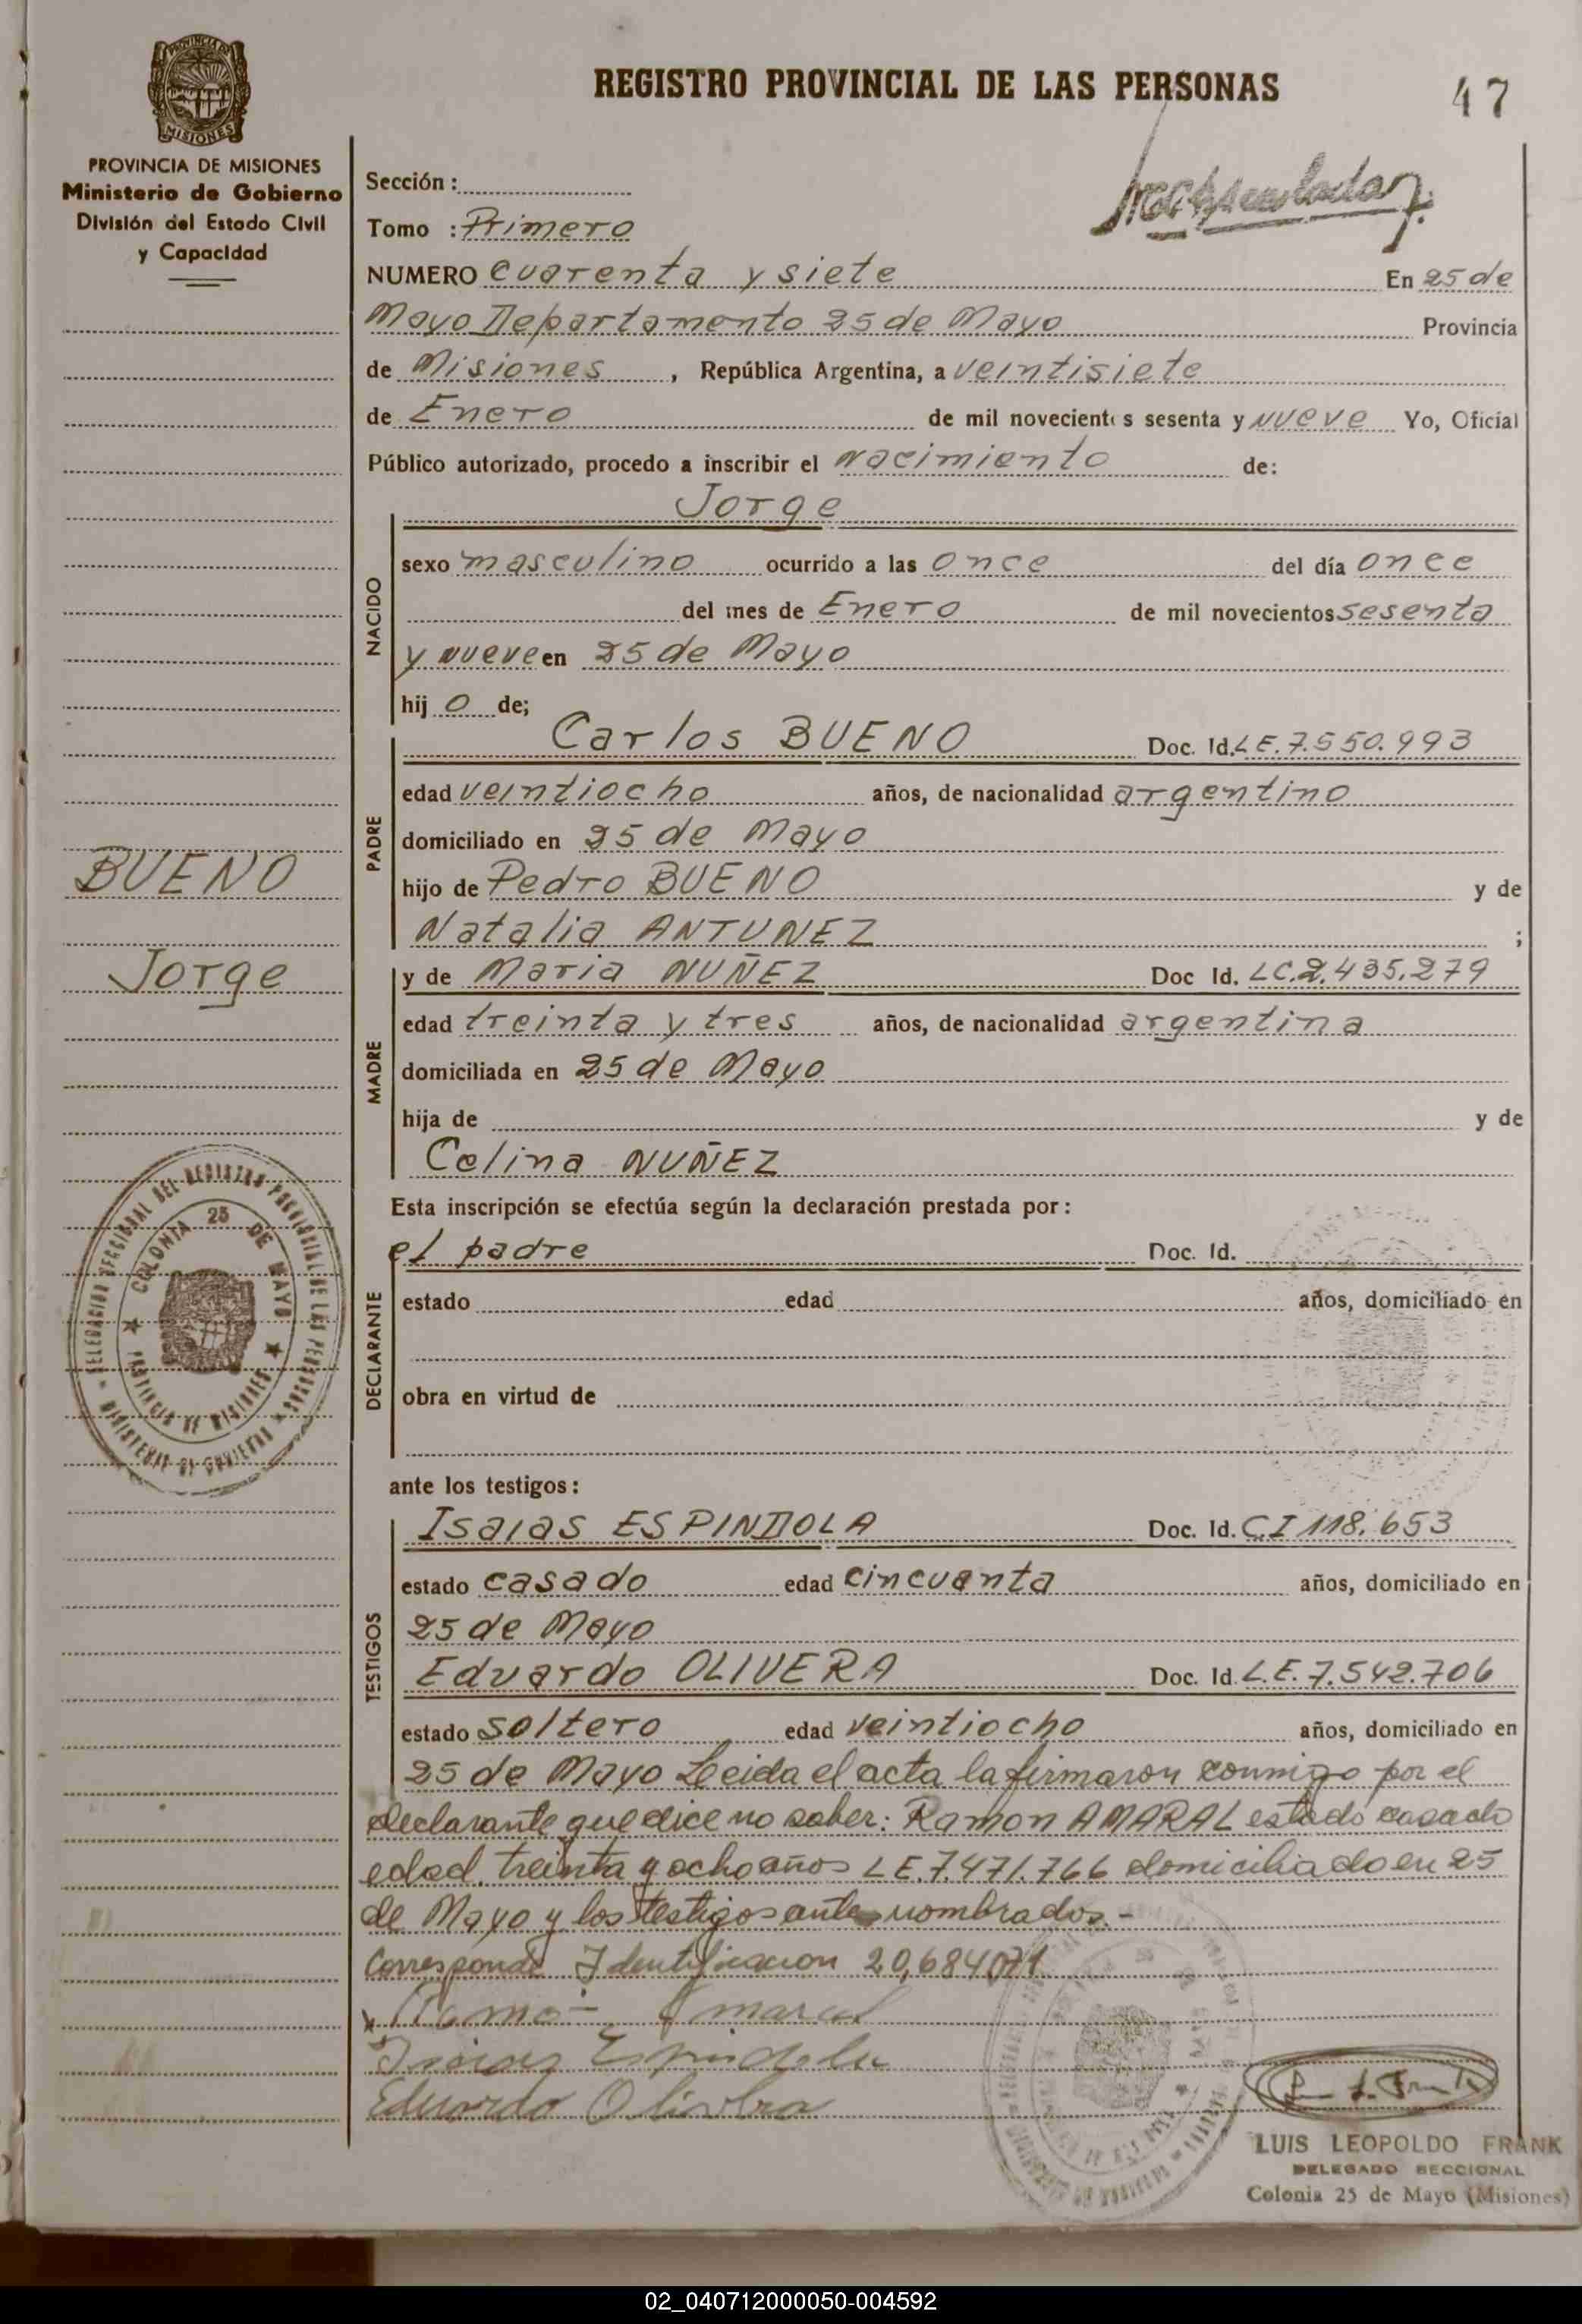 REGISTRO PROVINCIAL DE LAS PERSONAS
47
PROVINCIA DE MISIONES
Ministerio de Gobierno
División del Estado Civil
y Capacidad
Sección :
Tomo : Primero
NUMERO cuarenta y siete En 25 de
Mayo Departamento 25 de Mayo Provincia
de Misiones , República Argentina, a veintisiete
de Enero de mil novecientos sesenta y nueve Yo, Oficial
Público autorizado, procedo a inscribir el nacimiento de:
NACIDO
Jorge
sexo masculino ocurrido a las once del día once
del mes de Enero de mil novecientos sesenta
y nueve en 25 de Mayo
hij o de;
PADRE
Carlos BUENO Doc. Id. LE.7.550.993
edad veintiocho años, de nacionalidad argentino
domiciliado en 25 de Mayo
hijo de Pedro BUENO y de
Natalia ANTUNEZ ;
BUENO
Jorge
MADRE
y de Maria NUÑEZ Doc Id. LC.2.435.279
edad treinta y tres años, de nacionalidad argentina
domiciliada en 25 de Mayo
hija de y de
Celina NUÑEZ
Esta inscripción se efectúa según la declaración prestada por:
DECLARANTE
el padre Doc. Id.
estado edad años, domiciliado en
obra en virtud de
DELEGACION SECCIONAL DEL REGISTRO PROVINCIAL DE LAS PERSONAS
MINISTERIO DE GOBIERNO
COLONIA 25 DE MAYO
PROVINCIA DE MISIONES
ante los testigos:
TESTIGOS
Isaias ESPINDOLA Doc. Id. C.I 118.653
estado casado edad cincuenta años, domiciliado en
25 de Mayo
Eduardo OLIVERA Doc. Id. L.E.7.542.706
estado soltero edad veintiocho años, domiciliado en
25 de Mayo Leida el acta la firmaron conmigo por el
declarante que dice no saber: Ramon AMARAL estado casado
edad treinta y ocho años LE.7.471.766 domiciliado en 25
de Mayo y los testigos antes nombrados.-
Corresponde Identificacion 20,684,071
Amaral
Isaias Espindola
Eduardo Olivera
LUIS LEOPOLDO FRANK
DELEGADO SECCIONAL
Colonia 25 de Mayo (Misiones)
02_040712000050-004592